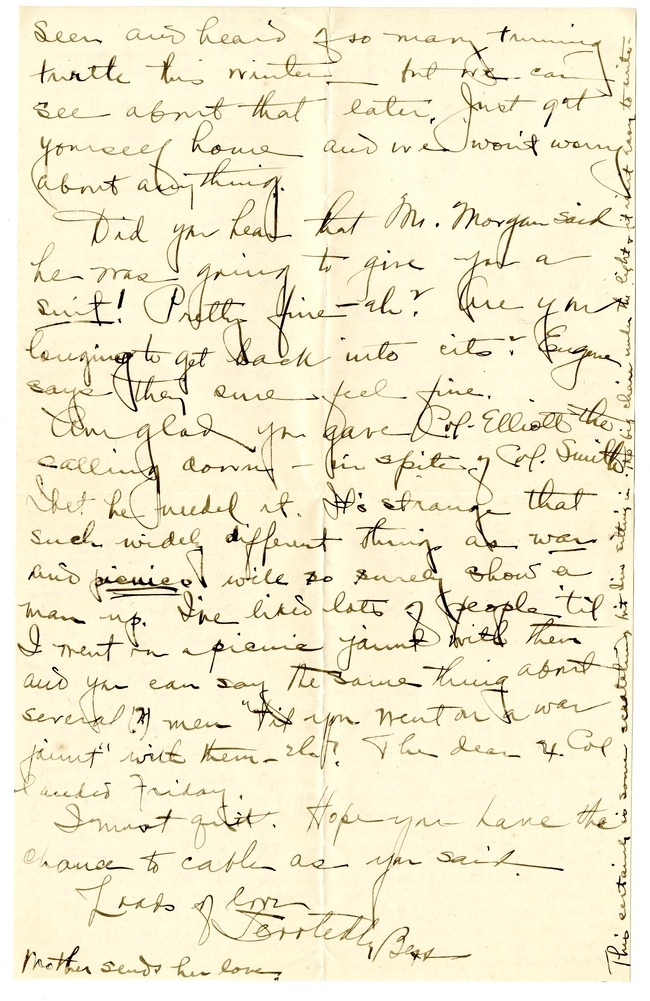 seen and heard of so many turning
turtle this winter – but we can
see about that later. Just get
yourself home and we won't worry
about anything.
Did you hear that Mr. Morgan said
he was going to give you a
suit! Pretty fine – eh? Are you
longing to get back into cits? Eugene
says they sure feel fine.
Am glad you gave Col. Elliott the
calling down – in spite of Col. Smith
I bet he needed it. It's strange that
such widely different things as war
and picnics will so surely show a
man up. I've liked lots of people 'til
I went on a picnic jaunt with them
and you can say the same thing about
several (?) men "'til you went on a war
jaunt" with them – eh? The dear Lt. Col
landed Friday.
I must quit. Hope you have the
chance to cable as you said.
Loads of love
Bess
Mother sends her love.
This certainly is some scratching but I'm sitting in the big chair under the light & it isn't easy to write.